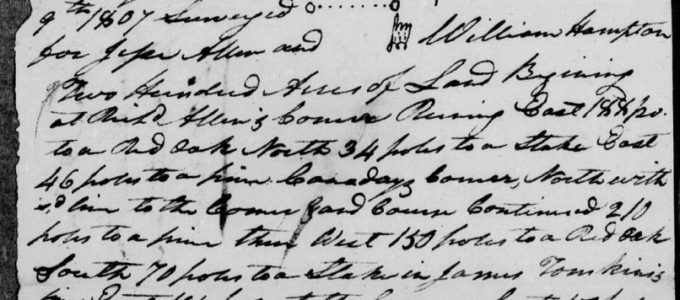 9th 1807 Surveyed
for Jesse Allen and William Hampton
Two Hundred Acres of Land Begining
at Richd Allen's Corner Runing East 188 po.
to a Red oak North 34 poles to a Stake East
46 poles to a pine Canaday's Corner, North with
sd line to the Corner and Course Continued 210
poles to a pine then West 150 poles to a Red oak
South 70 poles to a Stake in James Tomkins's
East